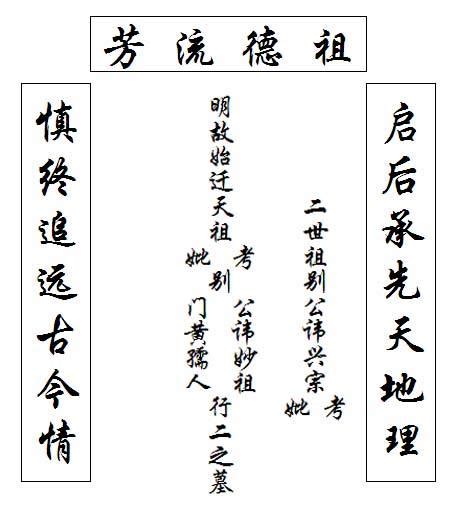 祖德流芳
启后承先天地理
二世祖别公讳兴宗
考
妣
明故始迁天祖
考
妣
别
公讳妙祖
门黄孺人
行二之墓
慎终追远古今情